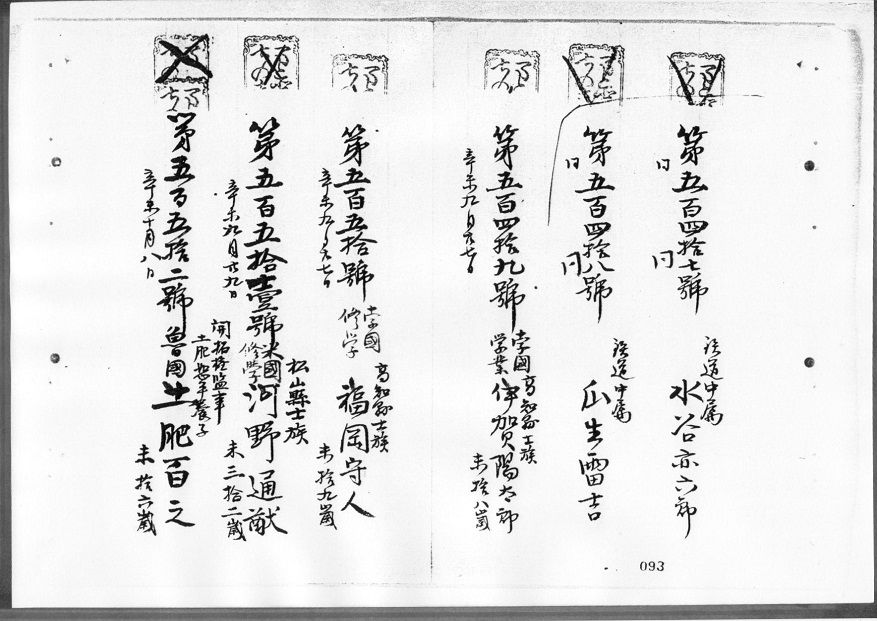 第五百四拾七號
同
同
鉄道中属
水谷亦六郎
第五百四拾八號
同
同
鉄道中属
瓜生雷吉
第五百四拾九號
辛未九月廿七日
学業
高知縣士族
伊賀陽太郎
未拾八歳
第五百五拾號
辛未九月廿七日
修学
高知縣士族
福岡守人
未拾九歳
第五百五拾壹號
辛未九月廿九日
米國
修學
松山縣士族
河野通猷
未三拾二歳
第五百五拾二號
辛未十月八日
魯國
開拓権監事
土肥
養子
土肥百之
未拾六歳
093